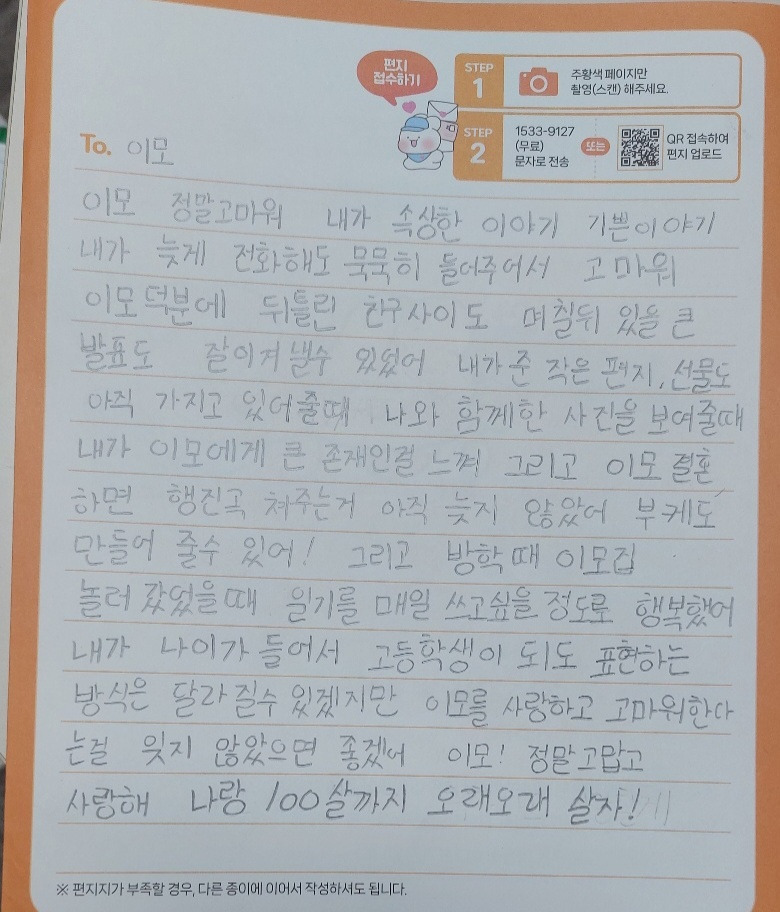 편지
접수하기
STEP
1
주황색 페이지만
촬영(스캔) 해주세요.
STEP
2
1533-9127
(무료)
문자로 전송
또는
QR 접속하여
편지 업로드
To. 이모
이모 정말고마워 내가 속상한 이야기 기쁜이야기
내가 늦게 전화해도 묵묵히 들어주어서 고마워
이모덕분에 뒤틀린 친구사이도 며칠뒤 있을 큰
발표도 잘이겨낼수 있었어 내가준 작은 편지, 선물도
아직 가지고 있어줄때 나와 함께한 사진을 보여줄때
내가 이모에게 큰 존재인걸 느껴 그리고 이모 결혼
하면 행진곡 쳐주는거 아직 늦지 않았어 부케도
만들어 줄수 있어! 그리고 방학때 이모집
놀러 갔었을때 일기를 매일 쓰고싶을 정도로 행복했어
내가 나이가 들어서 고등학생이 되도 표현하는
방식은 달라질수 있겠지만 이모를 사랑하고 고마워한다
는걸 잊지 않았으면 좋겠어 이모! 정말고맙고
사랑해 나랑 100살까지 오래오래 살자!
※ 편지지가 부족할 경우, 다른 종이에 이어서 작성하셔도 됩니다.